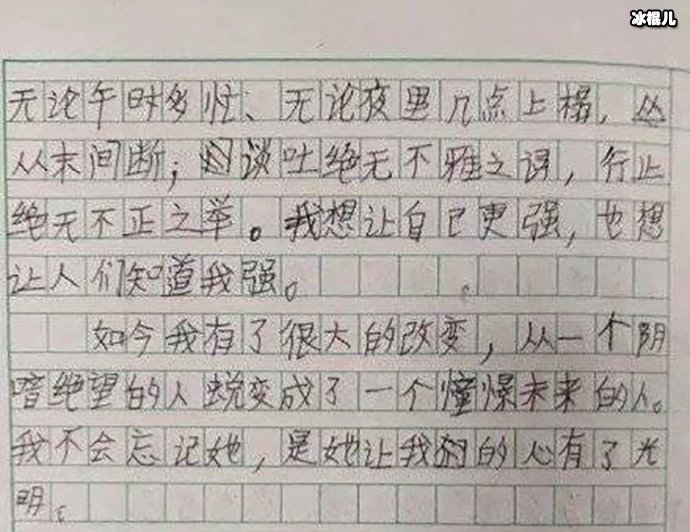 冰棍儿
无论午时多忙、无论夜里几点上榻，
从未间断；谈吐绝无不雅之词，行止
绝无不正之举。我想让自己更强，也想
让人们知道我强。
如今我有了很大的改变，从一个阴
暗绝望的人蜕变成了一个憧憬未来的人。
我不会忘记她，是她让我的心有了光
明。